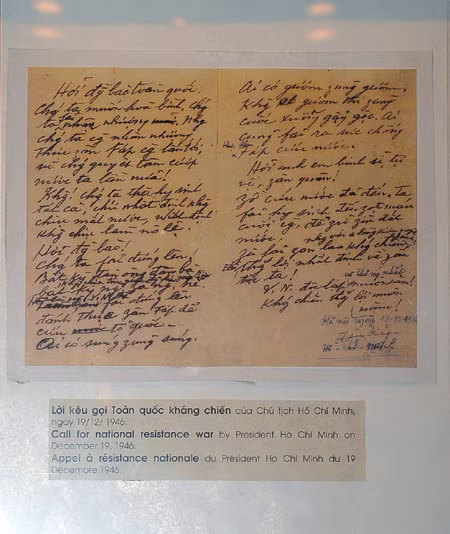 Hỡi đg bào toàn quốc.
Chg ta muốn hoà bình, chg
ta nhân nhượng. Nhg
chg ta cg nhân nhượng
thực zân Fáp cg lấn tới,
vì chg quyết tâm cướp
nước ta lần nữa!
Khg! chg ta thà hy sinh
tất cả, chứ nhất định khg
chịu mất nước, nhất định
khg chịu làm nô lệ.
Hỡi đg bào!
Chg ta fải đứng lên,
Bất kỳ đàn ông đàn bà
đứng lên
đánh thực zân Fáp để
cứu tổ quốc –
Ai có súng zùng súng.
Ai có gươm zùng gươm,
Khg có gươm thì zùng
cuốc xuổng gậy gộc. Ai
cũng fải ra sức chống
Fáp cứu nước.
Hỡi anh em binh sĩ tự
vệ, zân quân!
Zờ cứu nước đã đến. Ta
fải hy sinh đến zọt máu
cuối cg, để zữ zìn đất
nước.
Zù fải zan lao khg chiến,
thg lợi nhất định về zân
tộc ta!
và thống nhất
V.N. độc lập muôn năm!
Khg chiến thg lợi muôn
năm!
Hà nội ngày 19-12-1946
Hồ-chí-minh
Lời kêu gọi Toàn quốc kháng chiến của Chủ tịch Hồ Chí Minh,
ngày 19/12/ 1946.
Call for national resistance war by President Ho Chi Minh on
December 19, 1946.
Appel à résistance nationale du Président Ho Chi Minh du 19
Décembre 1946.